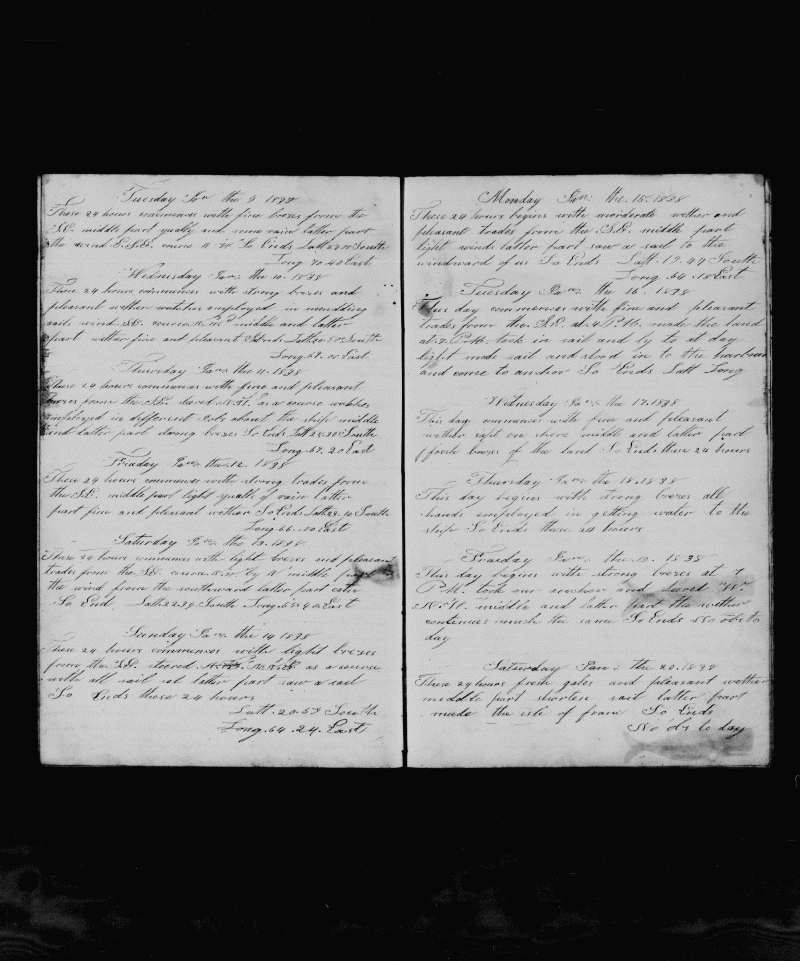 Tuesday Jan the 9 1838
These 24 hours commences with fine brezes from the
S.E. middle part squally and some rain latter part
the wind E.S.E. course N.W. So Ends Latt South
Long 70.40 East
Wednesday Jan the 10. 1838
These 24 hours commences with strong brezes and
pleasant wether watches employed in mendding
sails wind S.E. course middle and latter
part wether fine and pleasant So Ends Latt South
Long. 68.00 East
Thursday Jan the 11. 1838
These 24 hours commences with fine and pleasant
brezes from the S.E. steerd as a course watches
employed in different Jobs about the ship middle
and latter part strong brezes So Ends Latt South
Long. 67.20 East
Friaday Jan the 12. 1838
These 24 hours commences with strong trades from
the S.E. middle part light squalls of rain latter
part fine and pleasant wether So Ends Latt South
Long. 66.00 East
Saturday Jan the 13. 1838
These 24 hours commences with light brezes and pleasant
trades from the S.E. course by W middle part
the wind from the southward latter part calm
So End Latt South Long. East
Sunday Jan the 14 1838
These 24 hours commences with light brezes
from the S.E. steered as a course
with all sail set latter part saw a sail
So Ends these 24 hours
Latt. 20.59 South
Long. 64.24. East
Monday Jan the 15. 1838
These 24 hours begins with morderate wether and
pleasant trades from the S.E. middle part
light winds latter part saw a sail to the
windward of us So Ends Latt. 19.49 South
Long. 64.18 East
Tuesday Jan the 16. 1838
This day commences with fine and pleasant
trades from the S.E. at 4 P.M. made the land
at 7. P.M. took in sail and ly to at day
light made sail and stood in to the harbour
and come to anchor So Ends Latt Long
Wednesday Jan the 17. 1838
This day commences with fine and pleasant
wether on shore middle and latter part
fresh brezes of the land So Ends these 24 hours
Thursday Jan the 18. 1838
This day begins with strong brezes all
hands employed in getting water to the
ship So Ends these 24 hours
Fraiday Jan the 19. 1838
This day begins with strong brezes at 7
P.M. took our anchor and steerd W.
N.W. middle and latter part the wether
continues much the same So Ends No obs to
day
Saturday Jan the 20. 1838
These 24 hours fresh gales and pleasant wether
meddle part shorten sail latter part
made the isle of franc So Ends
No obs to day